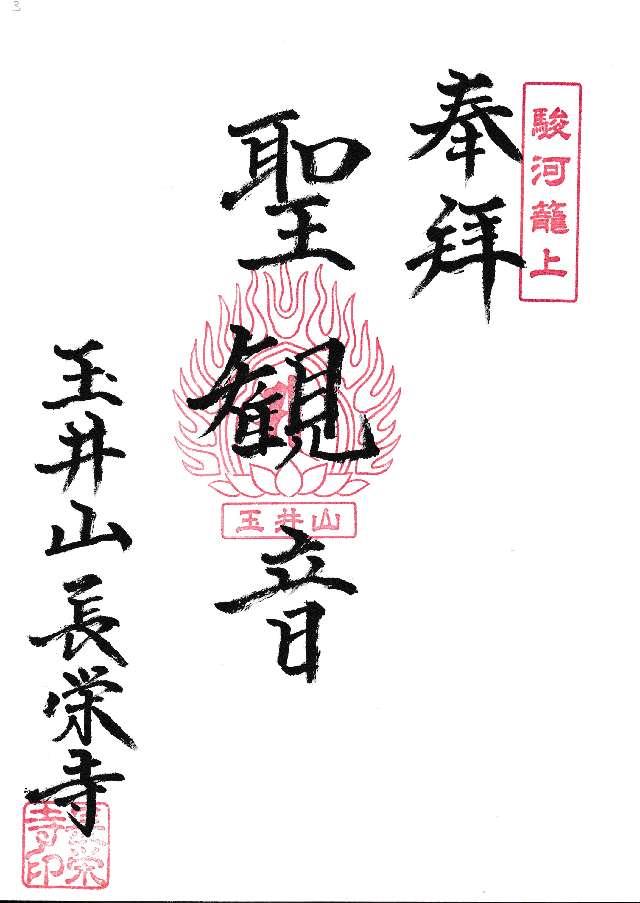 3
駿河籠上
奉拜
聖観音
玉井山
玉井山長栄寺
長栄寺印